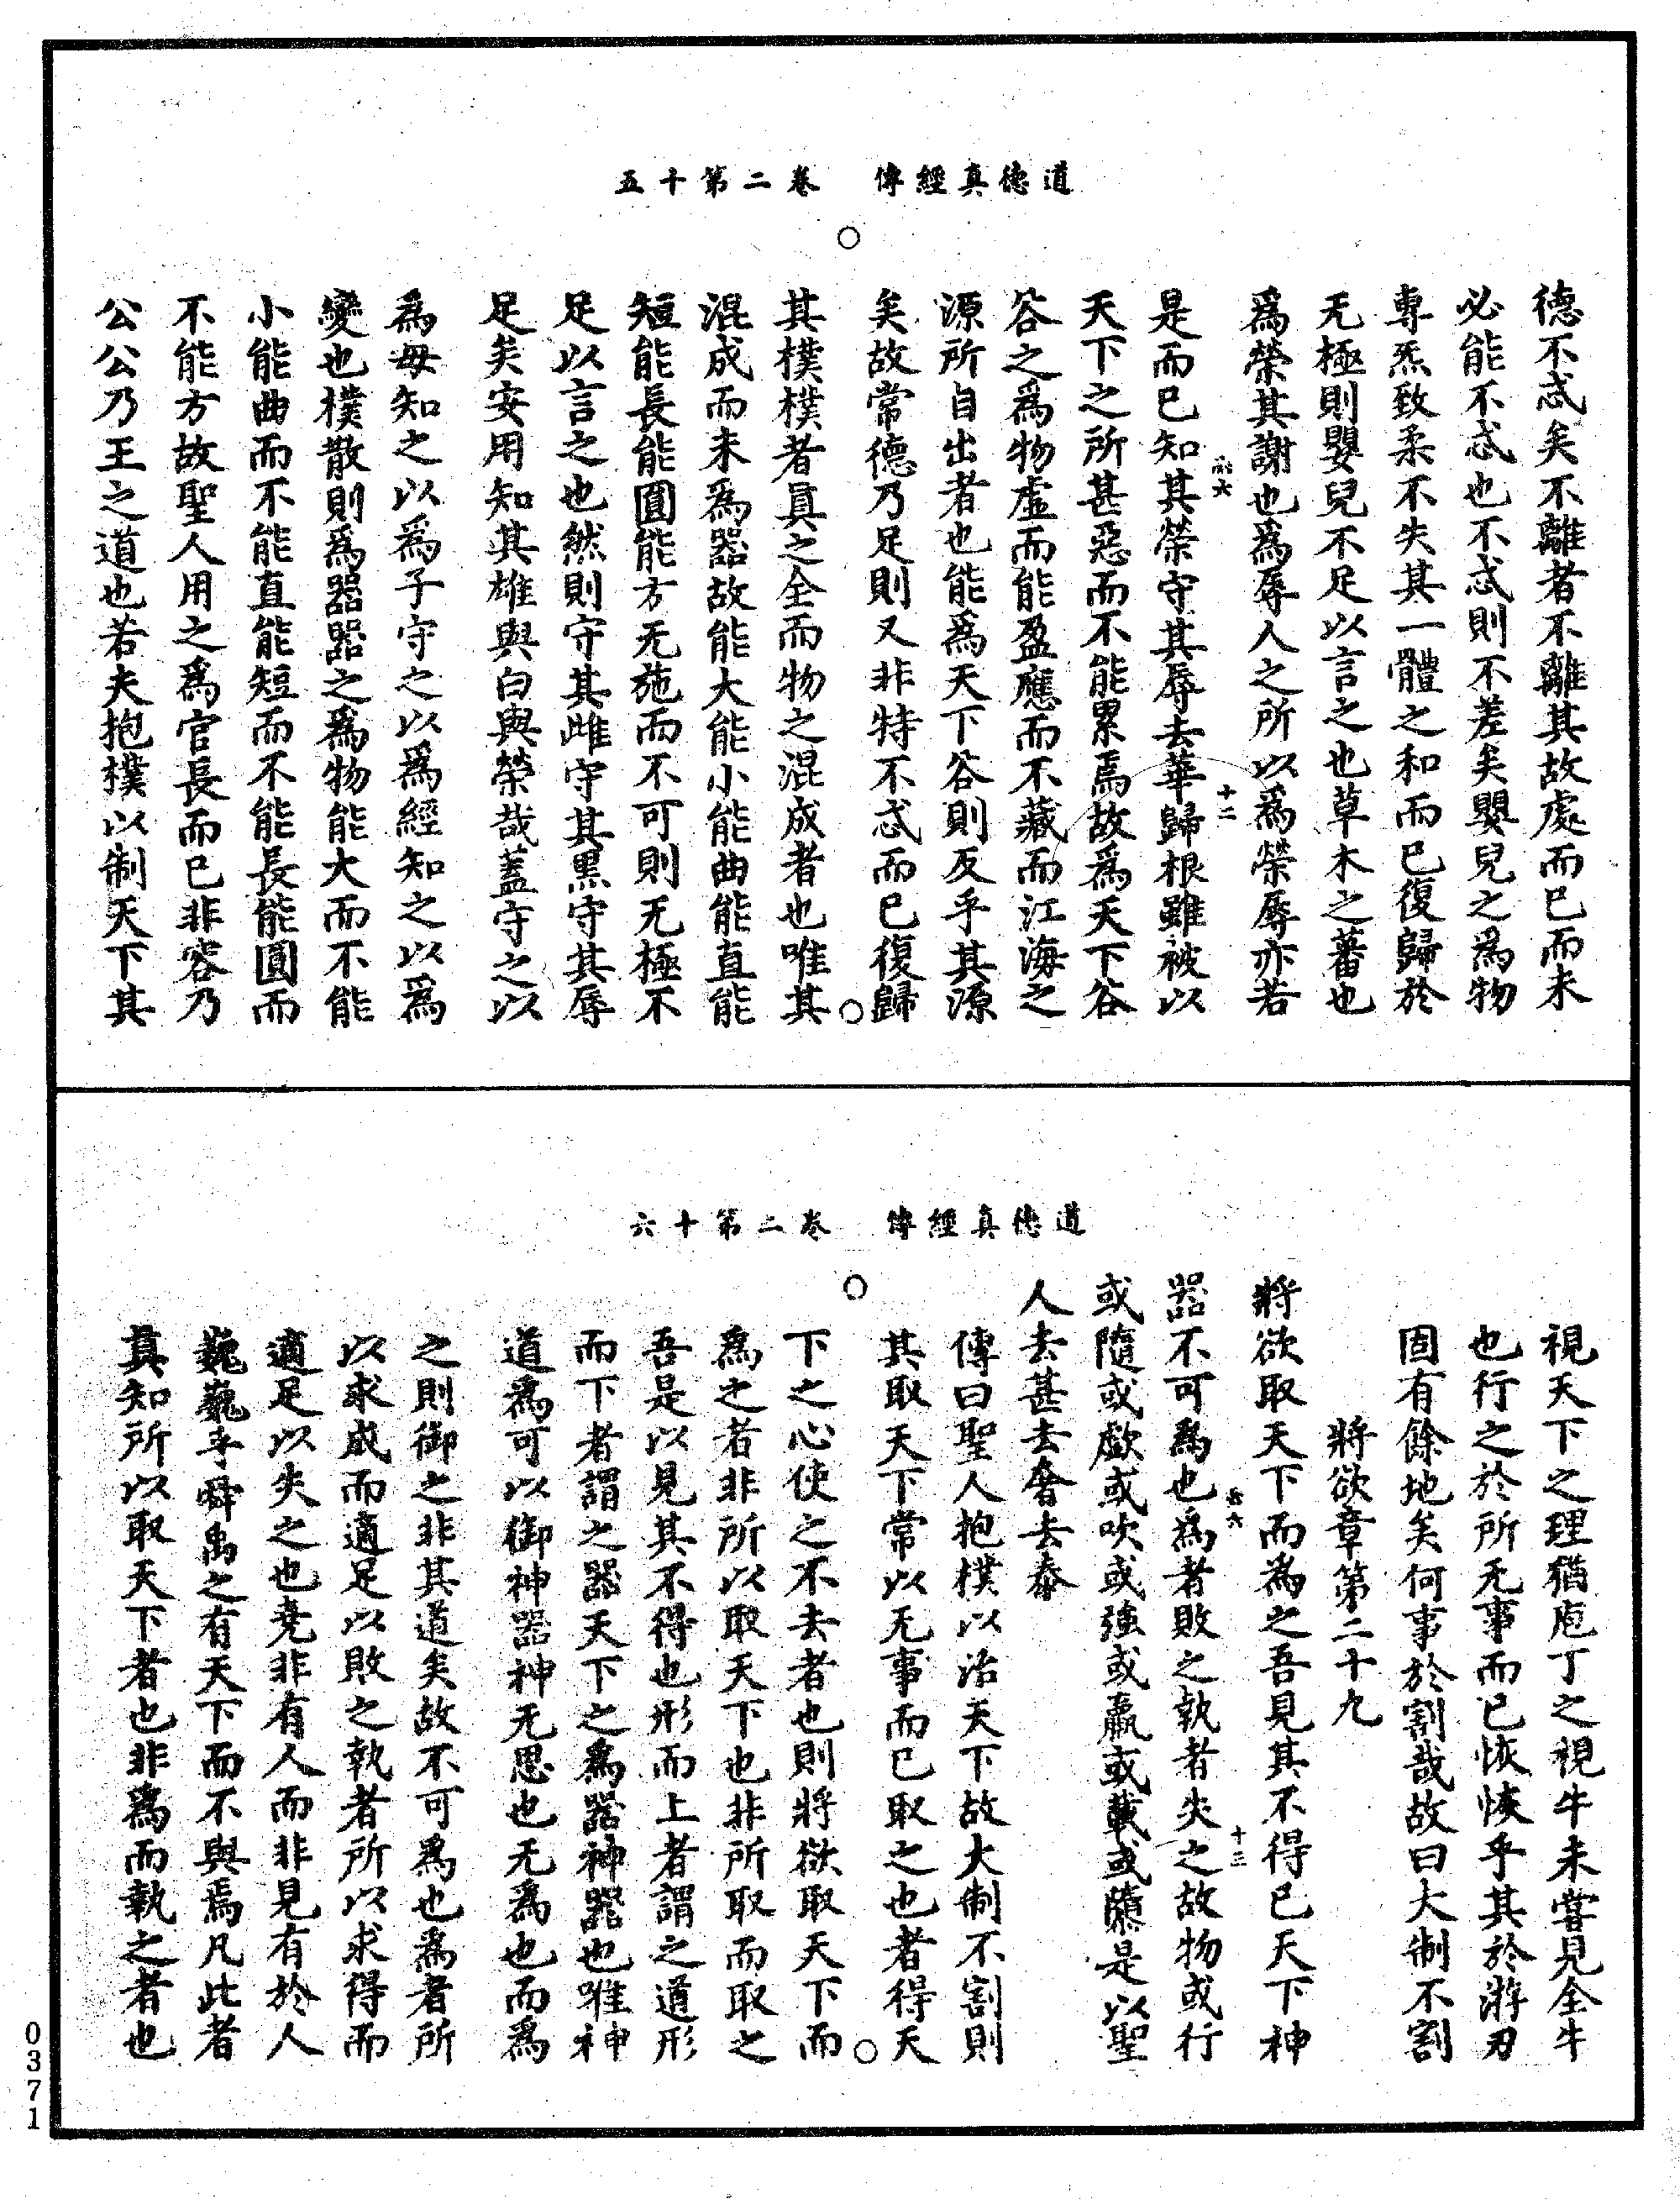 道德真經傳　卷二第十五
德不忒矣不離者不離其故處而已而未
必能不忒也不忒則不差矣嬰兒之爲物
專炁致柔不失其一體之和而已復歸於
无極則嬰兒不足以言之也草木之蕃也
爲榮其謝也爲辱人之所以爲榮辱亦若
是而已知其榮守其辱去華歸根雖被以
天下之所甚惡而不能累焉故爲天下谷
谷之爲物虛而能盈應而不藏而江海之
源所自出者也能爲天下谷則反乎其源
矣故常德乃足則又非特不忒而已復歸
其樸樸者真之全而物之混成者也唯其
混成而未爲器故能大能小能曲能直能
短能長能圓能方无施而不可則无極不
足以言之也然則守其雌守其黑守其辱
足矣安用知其雄與白與榮哉蓋守之以
爲母知之以爲子守之以爲經知之以爲
變也樸散則爲器器之爲物能大而不能
小能曲而不能直能短而不能長能圓而
不能方故聖人用之爲官長而已非容乃
公公乃王之道也若夫抱樸以制天下其
道德真經傳　卷二第十六
視天下之理猶庖丁之視牛未嘗見全牛
也行之於所无事而已恢恢乎其於游刃
固有餘地矣何事於割哉故曰大制不割
將欲章第二十九
將欲取天下而爲之吾見其不得已天下神
器不可爲也爲者敗之執者失之故物或行
或隨或歔或吹或強或羸或載或隳是以聖
人去甚去奢去泰
傳曰聖人抱樸以治天下故大制不割則
其取天下常以无事而已取之也者得天
下之心使之不去者也則將欲取天下而
爲之者非所以取天下也非所取而取之
吾是以見其不得也形而上者謂之道形
而下者謂之器天下之爲器神器也唯神
道爲可以御神器神无思也无爲也而爲
之則御之非其道矣故不可爲也爲者所
以求成而適足以敗之執者所以求得而
適足以失之也堯非有人而非見有於人
巍巍乎舜禹之有天下而不與焉凡此者
真知所以取天下者也非爲而執之者也
十二
十三
0371